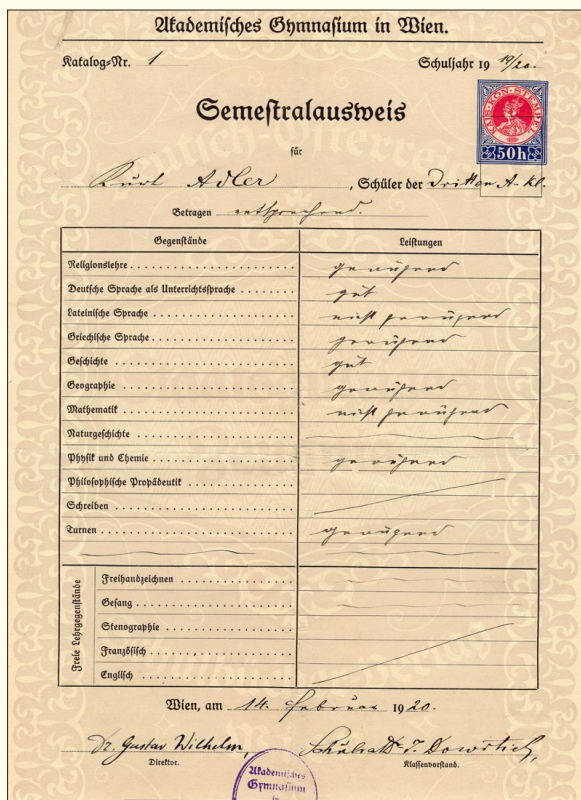 Akademisches Gymnasium in Wien.
Katalog-Nr. 1 Schuljahr 19 19/20.
KAIS·KÖN·STEMPEL
50h
Semestralausweis
für
Kurt Adler, Schüler der Dritten A-Kl.
Betragen entsprechend.
Gegenstände Leistungen
Religionslehre genügend
Deutsche Sprache als Unterrichtssprache gut
Lateinische Sprache nicht genügend
Griechische Sprache genügend
Geschichte gut
Geographie genügend
Mathematik nicht genügend
Naturgeschichte
Physik und Chemie genügend
Philosophische Propädeutik
Schreiben
Turnen genügend
Freie Lehrgegenstände
Freihandzeichnen
Gesang
Stenographie
Französisch
Englisch
Wien, am 14. Februar 1920.
Dr. Gustav Wilhelm, Schulrat
Direktor. Klassenvorstand.
Akademisches
Gymnasium
in